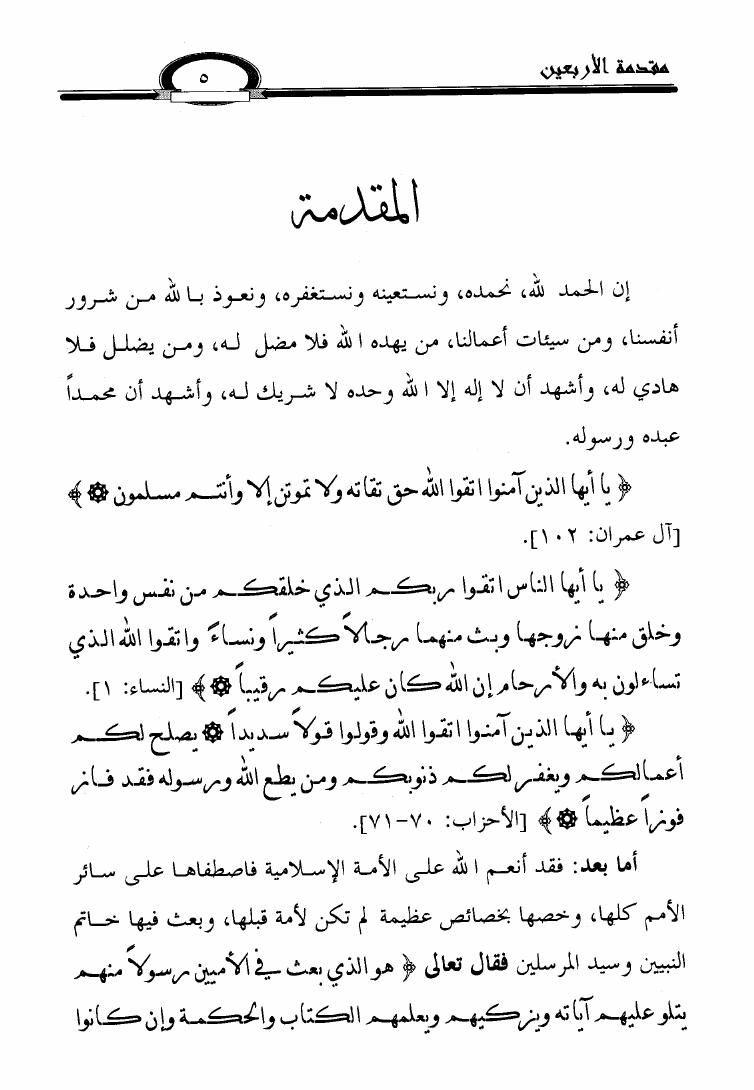 مقدمة الأربعين
٥
المقدمة
إن الحمد لله، نحمده، ونستعينه ونستغفره، ونعوذ بالله من شرور
أنفسنا، ومن سيئات أعمالنا، من يهده الله فلا مضل له، ومن يضلل فلا
هادي له، وأشهد أن لا إله إلا الله وحده لا شريك له، وأشهد أن محمداً
عبده ورسوله.
﴿ يا أيها الذين آمنوا اتقوا الله حق تقاته ولا تموتن إلا وأنتم مسلمون ۞ ﴾
[آل عمران: ١٠٢].
﴿ يا أيها الناس اتقوا ربكم الذي خلقكم من نفس واحدة
وخلق منها زوجها وبث منهما رجالاً كثيراً ونساءً واتقوا الله الذي
تساءلون به والأرحام إن الله كان عليكم رقيباً ۞ ﴾ [النساء: ١].
﴿ يا أيها الذين آمنوا اتقوا الله وقولوا قولاً سديداً ۞ يصلح لكم
أعمالكم ويغفر لكم ذنوبكم ومن يطع الله ورسوله فقد فاز
فوزاً عظيماً ۞ ﴾ [الأحزاب: ٧٠-٧١].
أما بعد: فقد أنعم الله على الأمة الإسلامية فاصطفاها على سائر
الأمم كلها، وخصها بخصائص عظيمة لم تكن لأمة قبلها، وبعث فيها خاتم
النبيين وسيد المرسلين فقال تعالى ﴿ هو الذي بعث في الأميين رسولاً منهم
يتلو عليهم آياته ويزكيهم ويعلمهم الكتاب والحكمة وإن كانوا